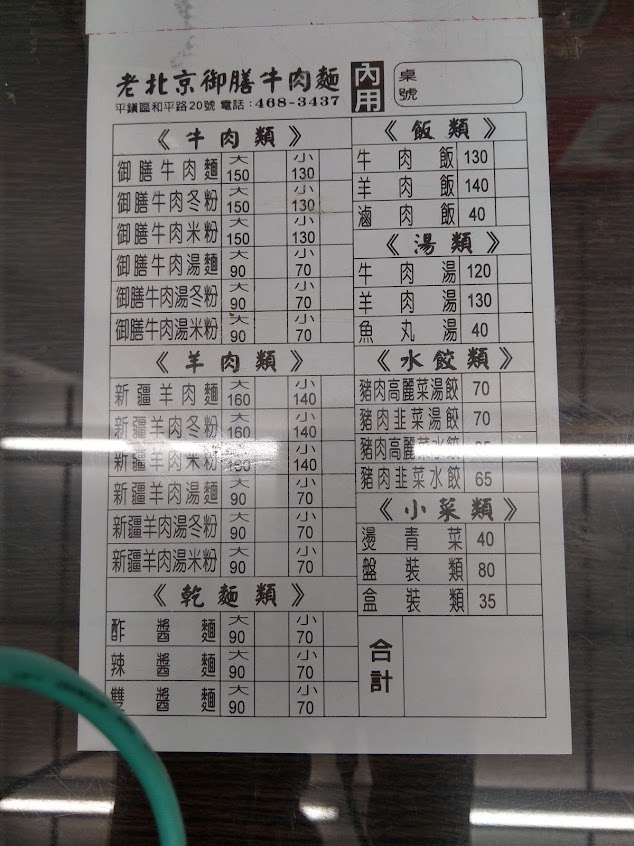 老北京御膳牛肉麵
內用
桌號
平鎮區和平路20號 電話：468-3437
《牛肉類》
御膳牛肉麵 大150 小130
御膳牛肉冬粉 大150 小130
御膳牛肉米粉 大150 小130
御膳牛肉湯麵 大90 小70
御膳牛肉湯冬粉 大90 小70
御膳牛肉湯米粉 大90 小70
《羊肉類》
新疆羊肉麵 大160 小140
新疆羊肉冬粉 大160 小140
新疆羊肉米粉 大160 小140
新疆羊肉湯麵 大90 小70
新疆羊肉湯冬粉 大90 小70
新疆羊肉湯米粉 大90 小70
《乾麵類》
酢醬麵 大90 小70
辣醬麵 大90 小70
雙醬麵 大90 小70
《飯類》
牛肉飯 130
羊肉飯 140
滷肉飯 40
《湯類》
牛肉湯 120
羊肉湯 130
魚丸湯 40
《水餃類》
豬肉高麗菜湯餃 70
豬肉韭菜湯餃 70
豬肉高麗菜水餃
豬肉韭菜水餃 65
《小菜類》
燙青菜 40
盤裝類 80
盒裝類 35
合計